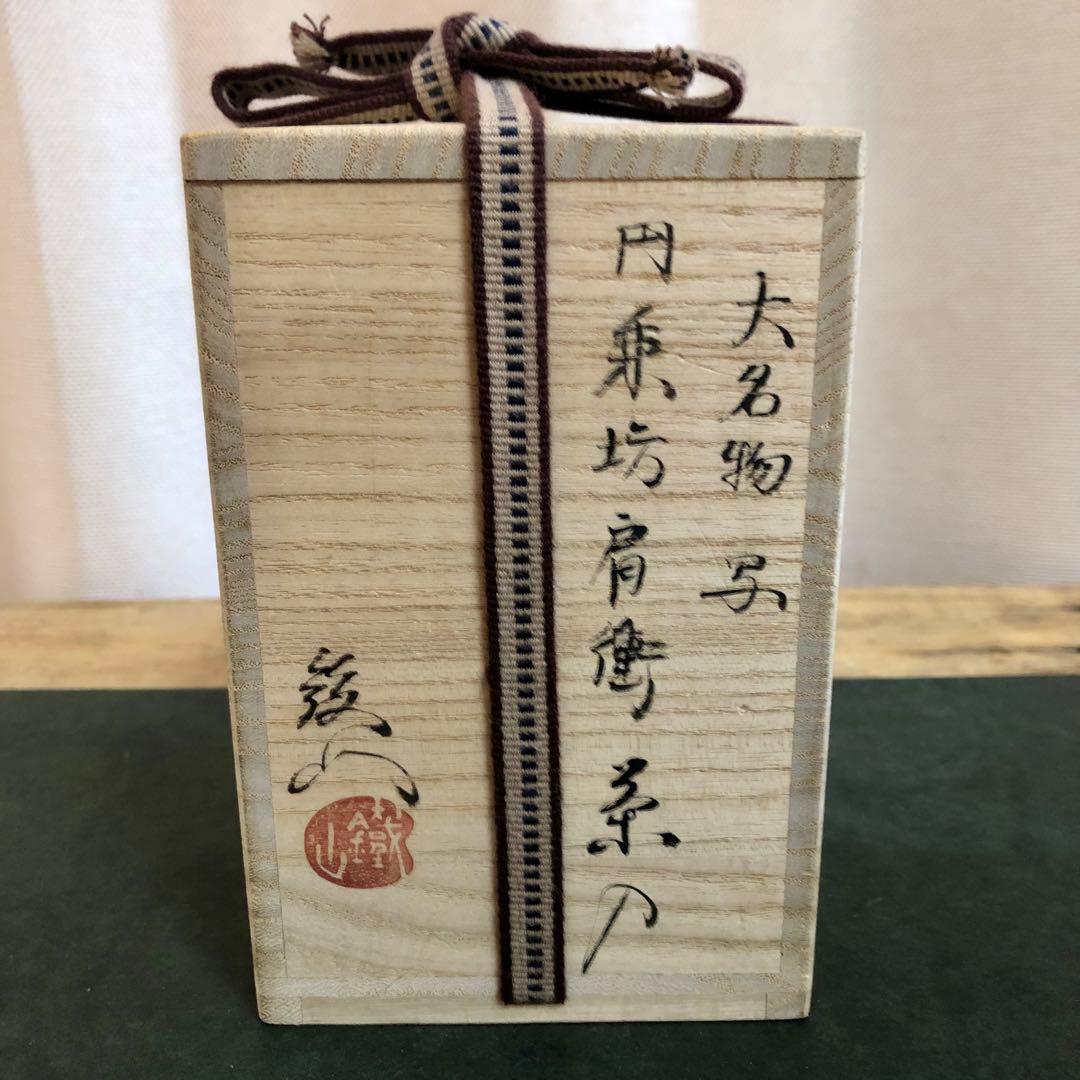 大名物 写
円乗坊肩衝茶入
鐵山